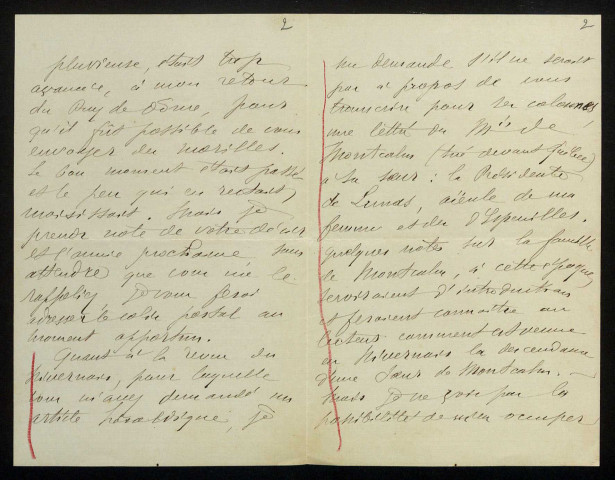 2
pluvieuse, était trop
avancée, à mon retour
du Puy de Dôme, pour
qu'il fût possible de vous
envoyer des morilles.
Le bon moment était passé
et le peu qui en restait,
moisissait. Mais je
prends note de votre désir
et l'année prochaine, sans
attendre que vous me le
rappeliez je vous ferai
adresser le colis postal au
moment opportun.
Quant à la revue du
Nivernais, pour laquelle
vous m'avez demandé un
article héraldique, je
2
me demande s'il ne serait
pas à propos de vous
transcrire pour ses colonnes,
une lettre du Mis de
Montcalm (tué devant Québec)
à sa sœur : la Présidente
de Lunas, aïeule de ma
femme et des d'Espeuilles.
Quelques notes sur la famille
de Montcalm, à cette époque,
serviraient d'introduction
et feraient connaître au
lecteur comment est venue
en Nivernais la descendance
d'une sœur de Montcalm. —
Mais je ne vois pas la
possibilité de m'en occuper